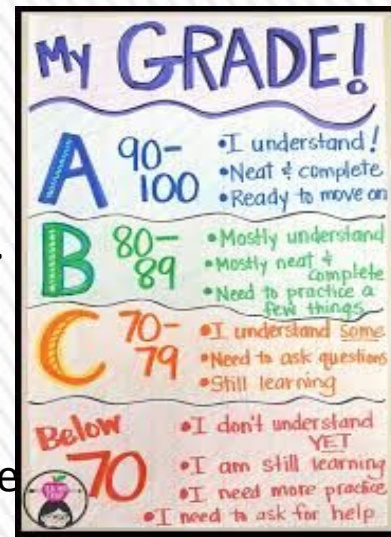 My GRADE!
A 90-100
•I understand!
•Neat & complete
•Ready to move on
B 80-89
•Mostly understand
•Mostly neat & complete
•Need to practice a few things
C 70-79
•I understand some
•Need to ask questions
•Still learning
Below 70
•I don't understand YET
•I am still learning
•I need more practice
•I need to ask for help
e